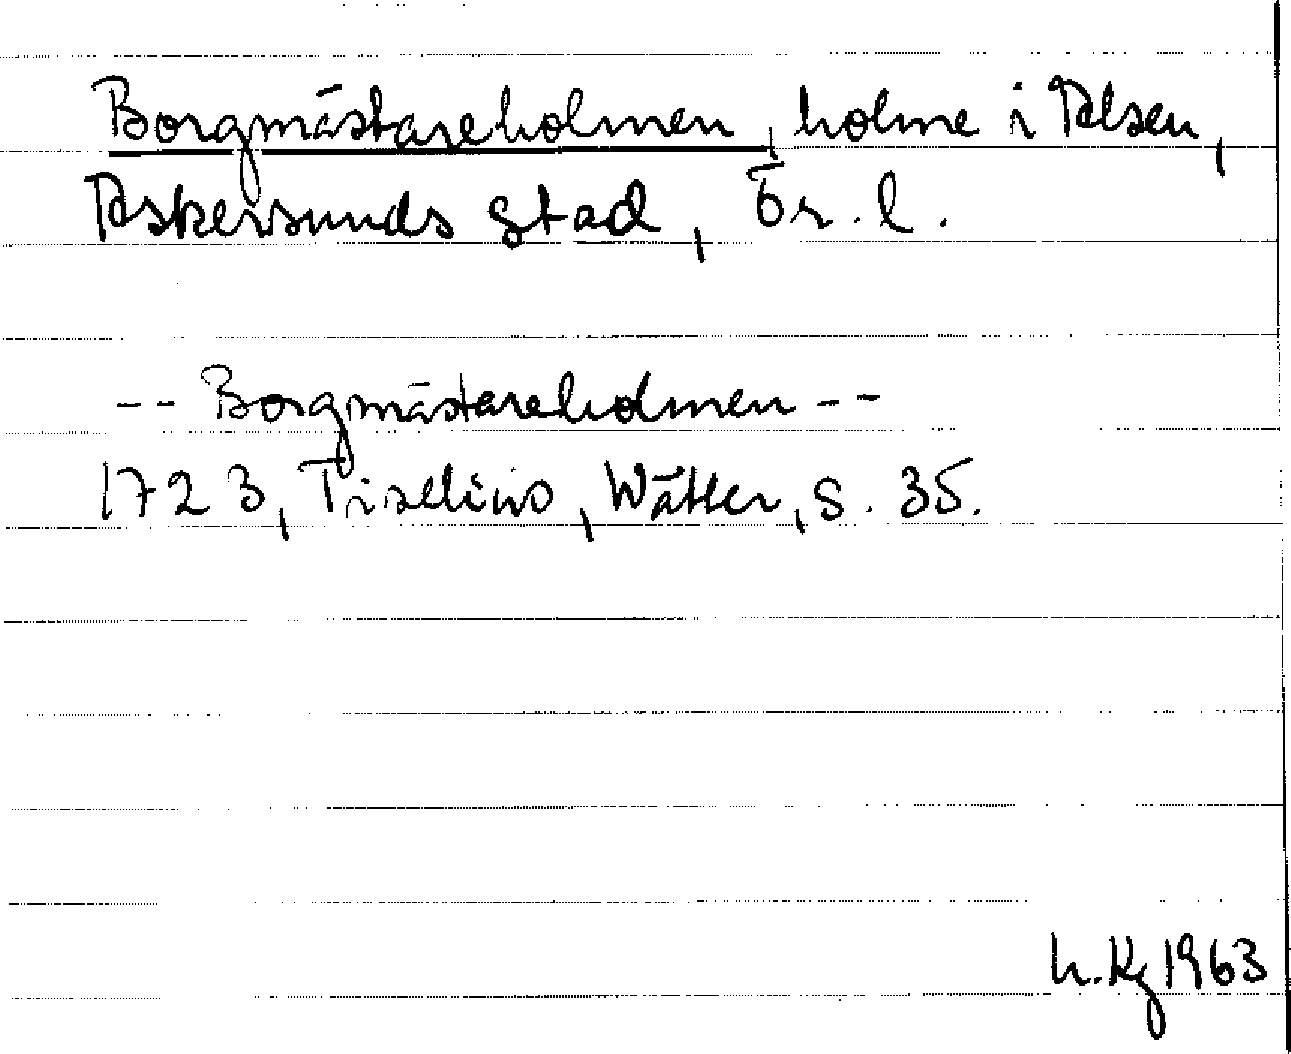 Borgmästareholmen, holme i Alsen,
Askersunds stad, Ör. l.
-- Borgmästareholmen --
1723, Tiselius, Wätter, s. 35.
h. Kg 1963